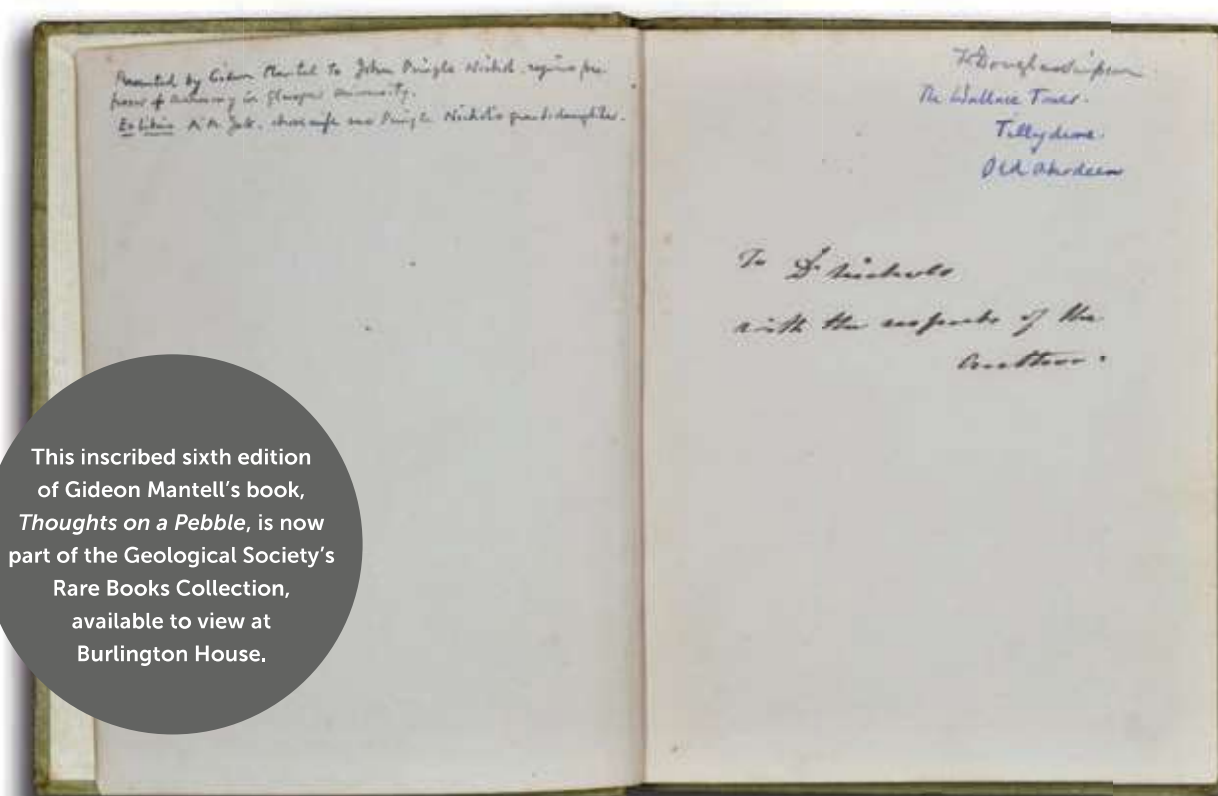 Presented by Gideon Mantel to John Pringle Nichol, regius pro-
fessor of Astronomy in Glasgow University.
Ex Libris A.A. Jack, whose wife was Pringle Nichol's granddaughter.
W Douglas Simpson
The Wallace Tower.
Tillydrone.
Old Aberdeen
To Dr Nichols
with the respects of the
Author.
This inscribed sixth edition
of Gideon Mantell's book,
Thoughts on a Pebble, is now
part of the Geological Society's
Rare Books Collection,
available to view at
Burlington House.